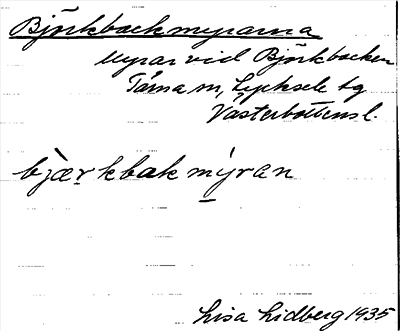 Björkbackmyrarna
Myrar vid Björkbacken
Tärna sn, Lycksele tg
Västerbottens l.
bjærkbakmýran
Lisa Lidberg 1935